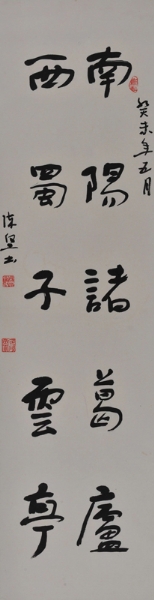 南陽諸葛廬
西蜀子雲亭
癸未年五月